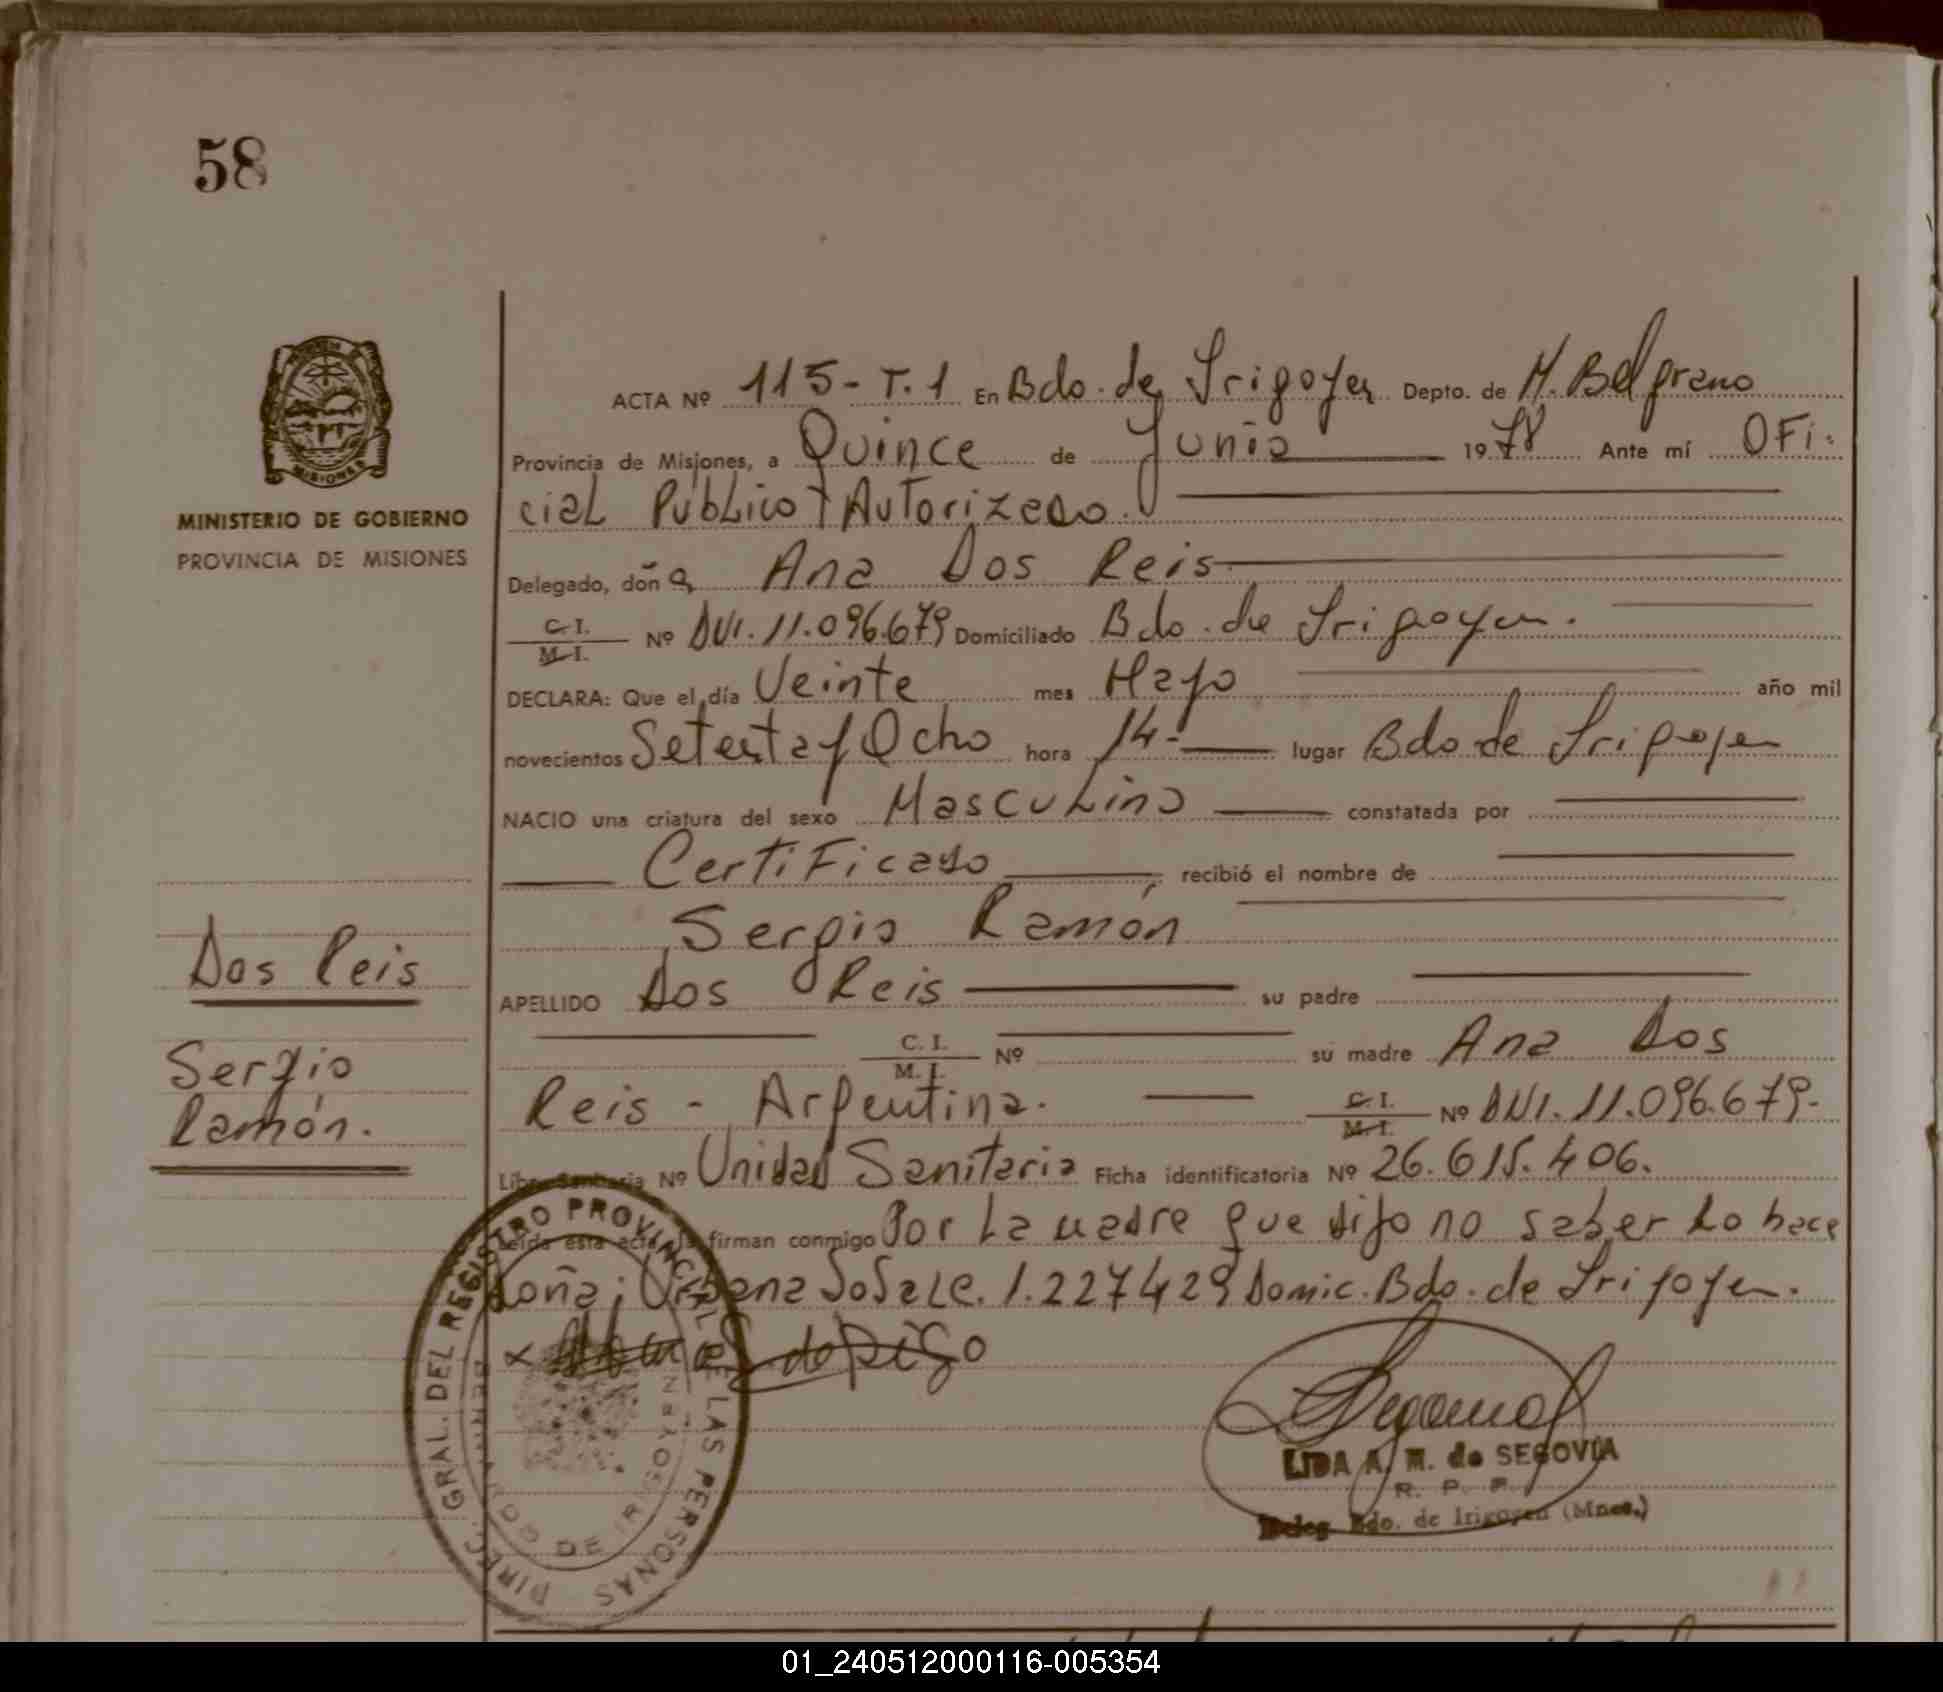 58
ACTA Nº 115-T.1 En Bdo. de Irigoyen Depto. de M. Belgrano
Provincia de Misiones, a Quince de Junio 1978 Ante mí Ofi-
cial Público Autorizado.
MINISTERIO DE GOBIERNO
PROVINCIA DE MISIONES
Delegado, doñ a Ana Dos Reis
C. I. M. I. Nº DNI. 11.096.679 Domiciliado Bdo. de Irigoyen.
DECLARA: Que el día Veinte mes Mayo año mil
novecientos Setenta y Ocho hora 14- lugar Bdo de Irigoyen
NACIO una criatura del sexo Masculino constatada por
Certificado recibió el nombre de
Sergio Ramón
Dos Reis
APELLIDO Dos Reis su padre
C. I. M. I. Nº su madre Ana Dos
Sergio
Ramón.
Reis - Argentina. C. I. M. I. Nº DNI. 11.096.679-
Libr. Sanitaria Nº Unidad Sanitaria Ficha identificatoria Nº 26.615.406.
Leída esta acta firman conmigo Por la madre que dijo no saber lo hace
doña: Urbana Sosa LE. 1.227429 Domic. Bdo. de Irigoyen.
DIREC. GRAL. DEL REGISTRO PROVINCIAL DE LAS PERSONAS
BERNARDO DE IRIGOYEN
LIDA A. M. de SEGOVIA
R. P. P.
Deleg. Bdo. de Irigoyen (Mnes.)
01_240512000116-005354